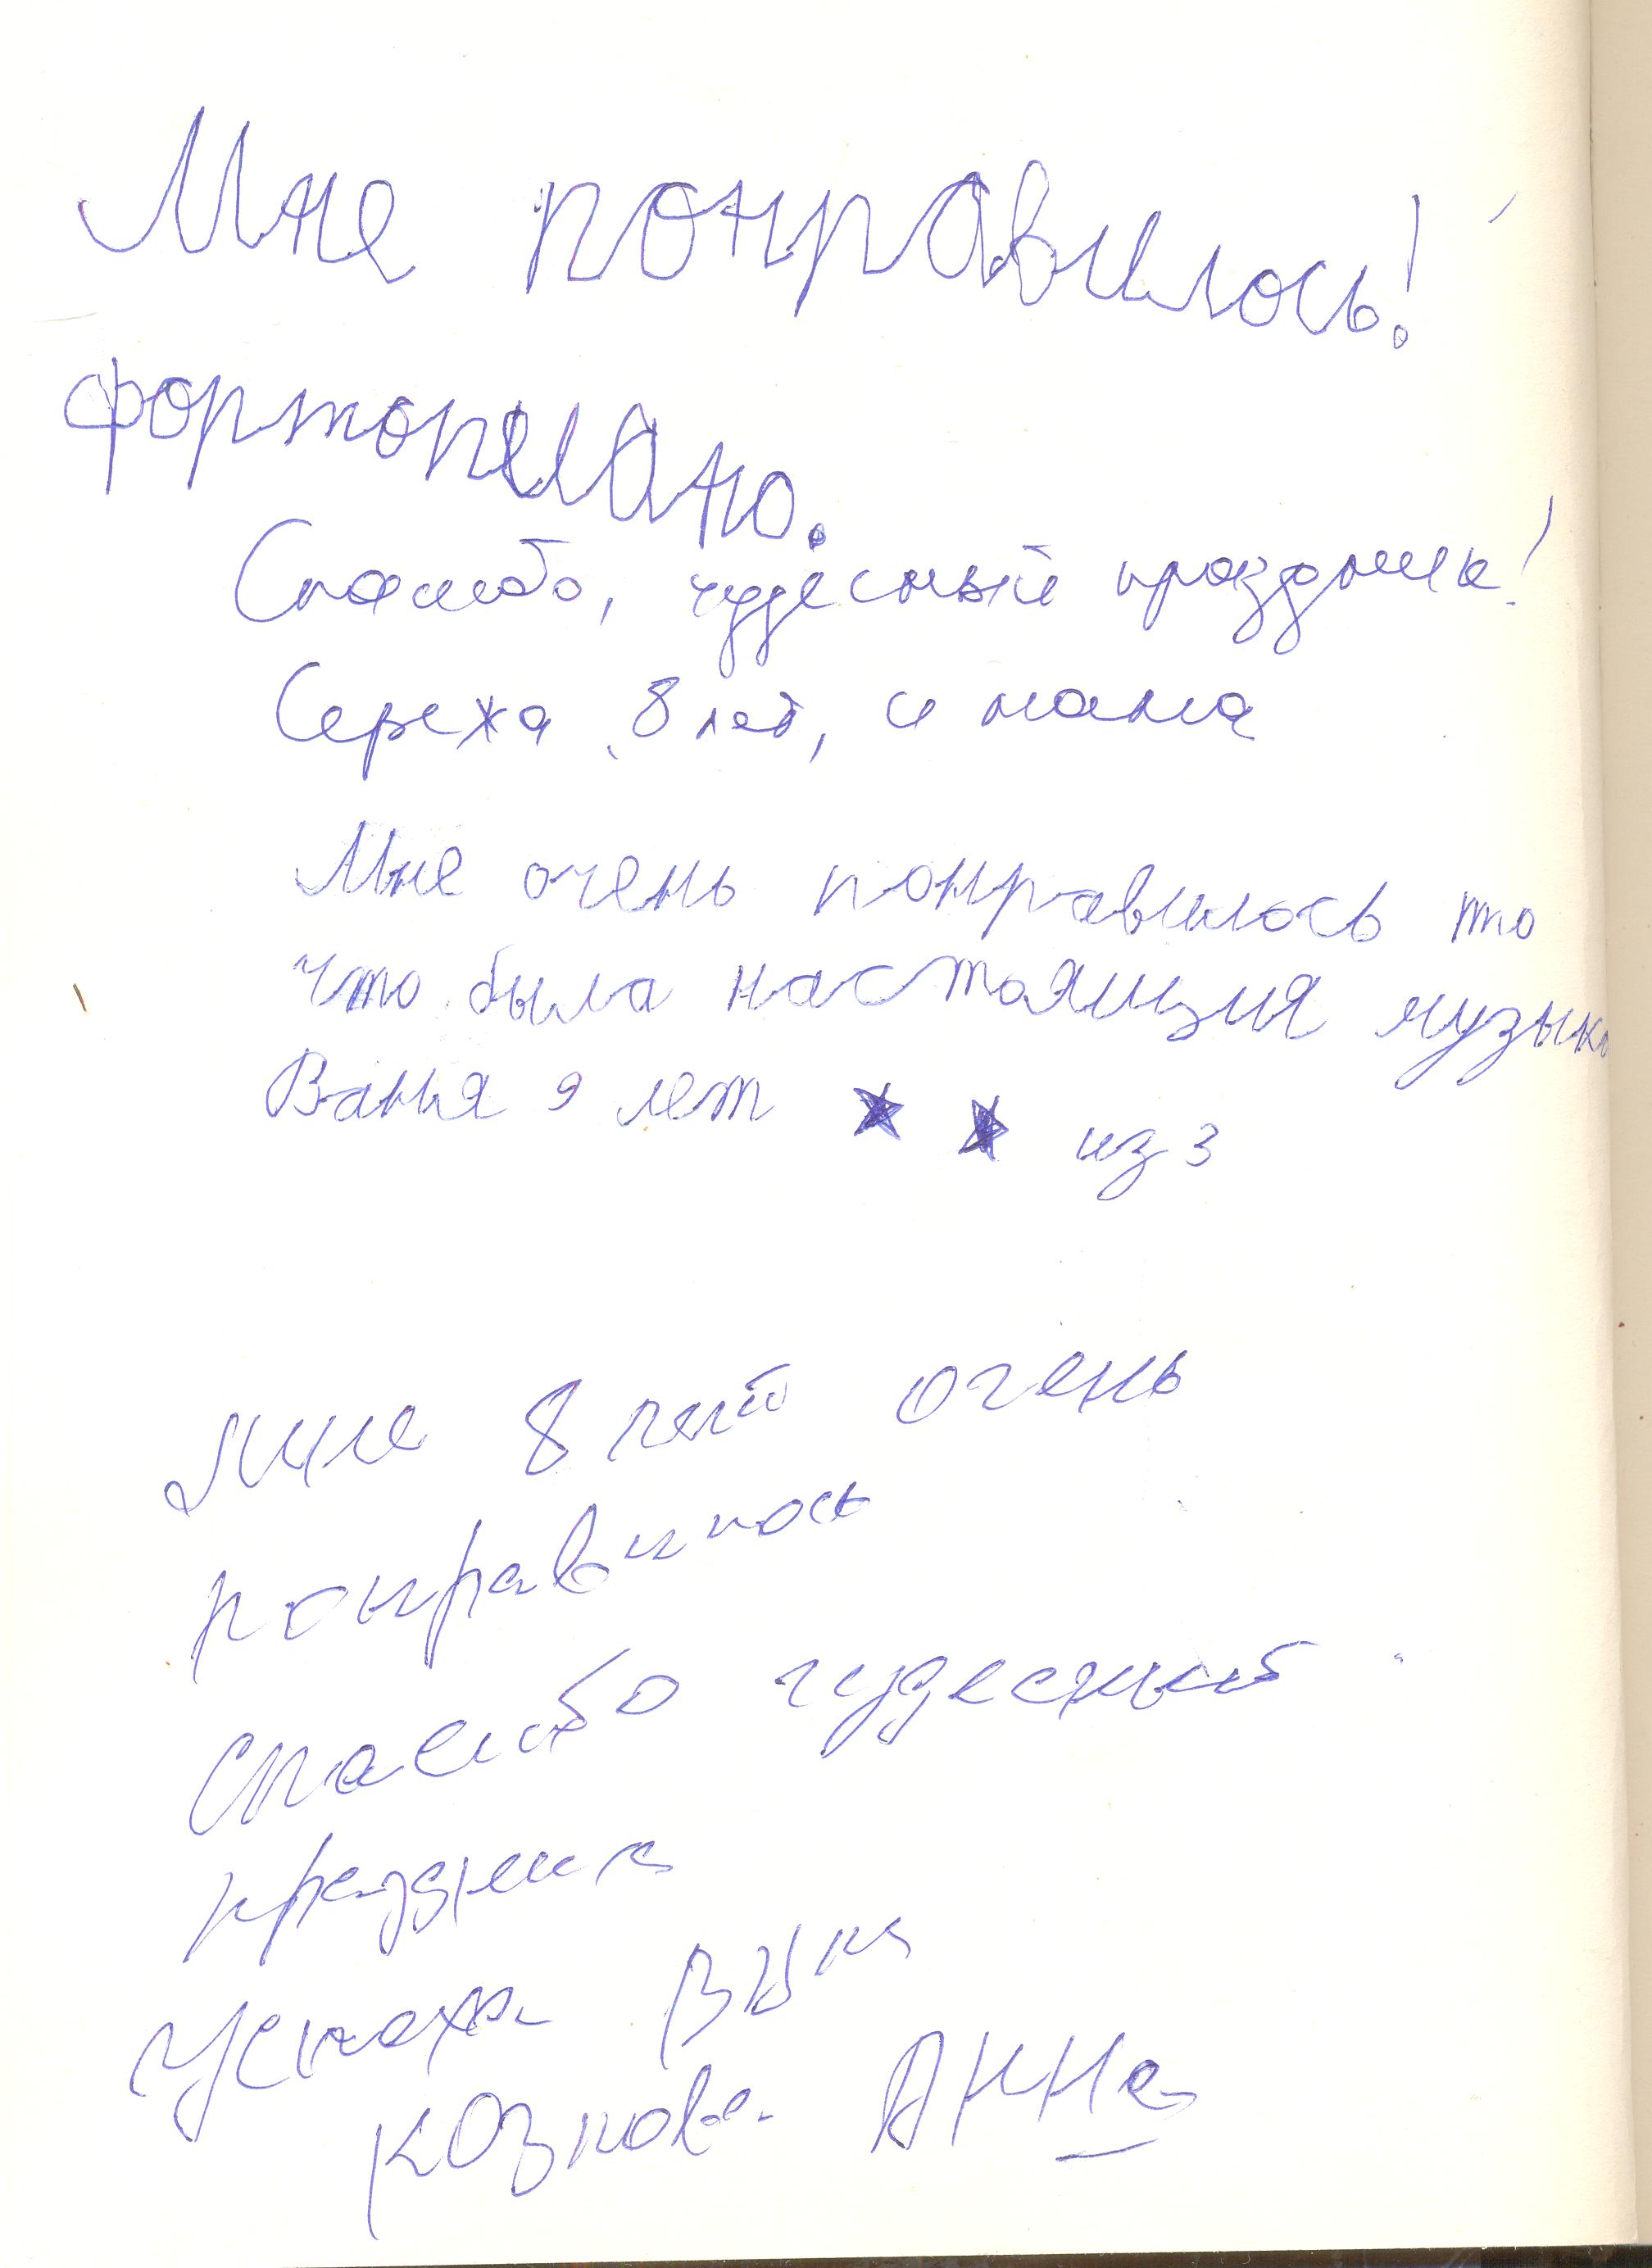 Мне понравилось!
фортопиано.
Спасибо, чудесный праздник!
Сережа 8 лет, и мама
Мне очень понравилось то
что была настоящия музыка
Ваня 9 лет ★ ★ из 3
мне 8 лет очень
понравилось
спасибо чудесный
праздник
успеха Вам
Анна